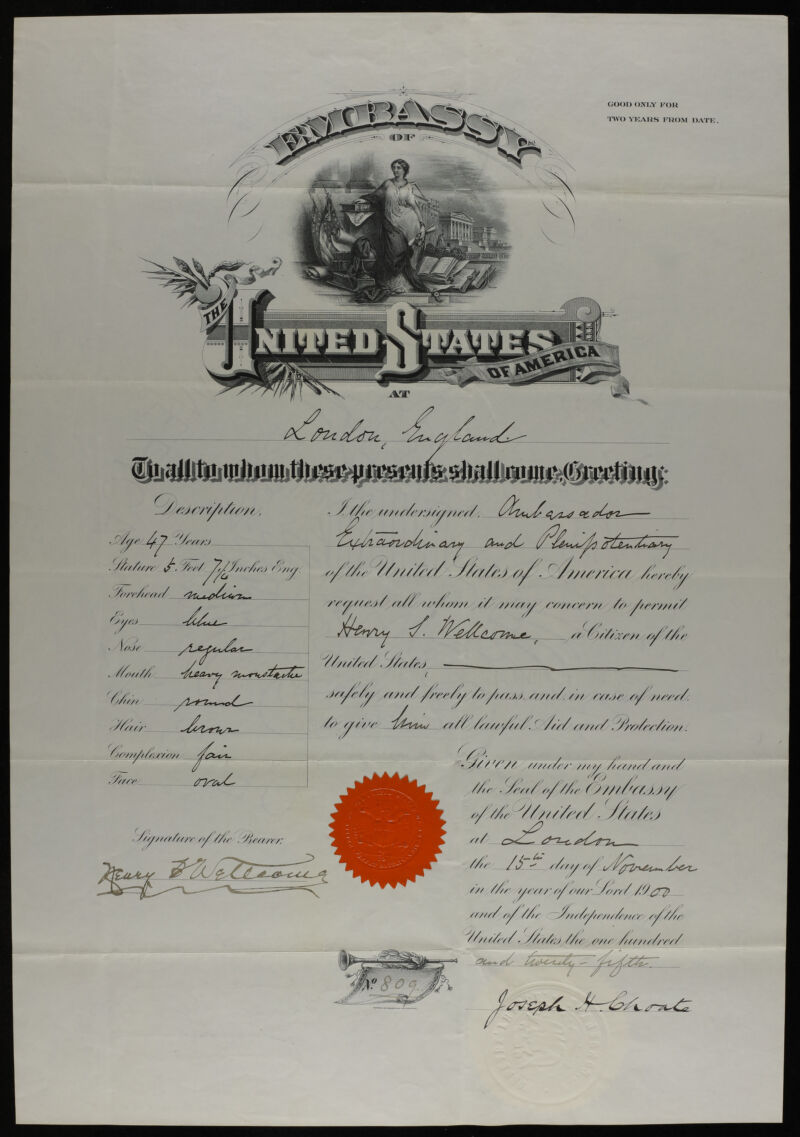 GOOD ONLY FOR
TWO YEARS FROM DATE.
EMBASSY
OF
THE
UNITED STATES
OF AMERICA
AT
London, England
To all to whom these presents shall come, Greeting:
Description.
Age 47 Years
Stature 5 Feet 7½ Inches Eng.
Forehead medium
Eyes blue
Nose regular
Mouth heavy moustache
Chin round
Hair brown
Complexion fair
Face oval
Signature of the Bearer.
Henry S Wellcome
I the undersigned, Ambassador
Extraordinary and Plenipotentiary
of the United States of America hereby
request all whom it may concern to permit
Henry S. Wellcome, a Citizen of the
United States,
safely and freely to pass, and in case of need
to give him all lawful Aid and Protection.
Given under my hand and
the Seal of the Embassy
of the United States
at London
the 15th day of November
in the year of our Lord 1900
and of the Independence of the
United States the one hundred
and twenty-fifth.
Joseph H. Choate
No 809